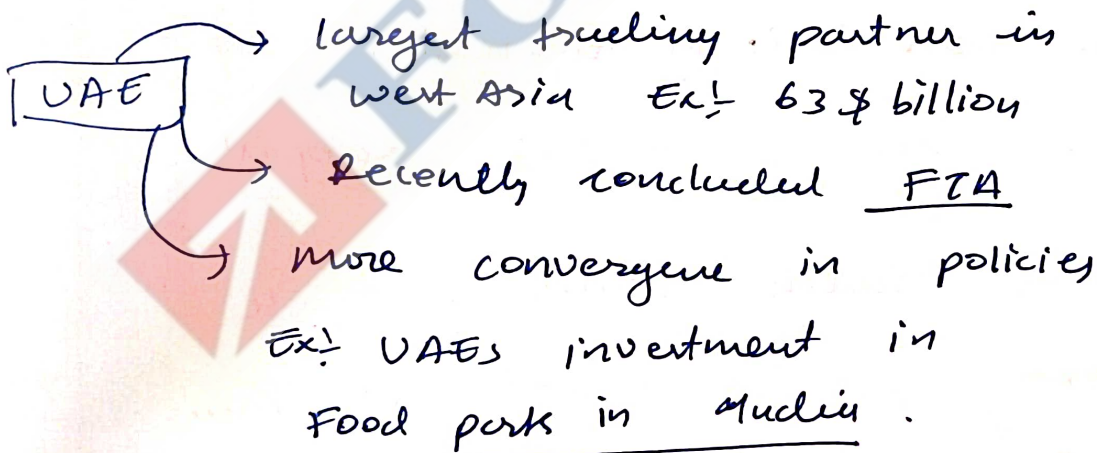 UAE
largest trading partner in
west Asia Ex:- 63 $ billion
Recently concluded FTA
more convergence in policies
Ex:- UAEs investment in
Food parks in India.